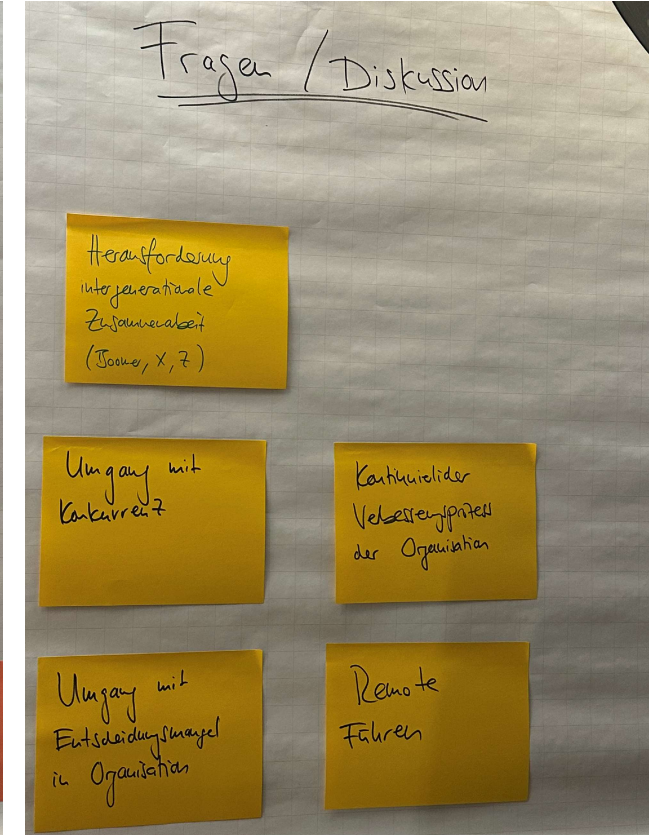 Fragen / Diskussion
Herausforderung
intergenerationale
Zusammenarbeit
(Boomer, X, Z)
Umgang mit
Konkurrenz
Kontinuierlicher
Verbesserungsprozess
der Organisation
Umgang mit
Entscheidungsmangel
in Organisation
Remote
Führen